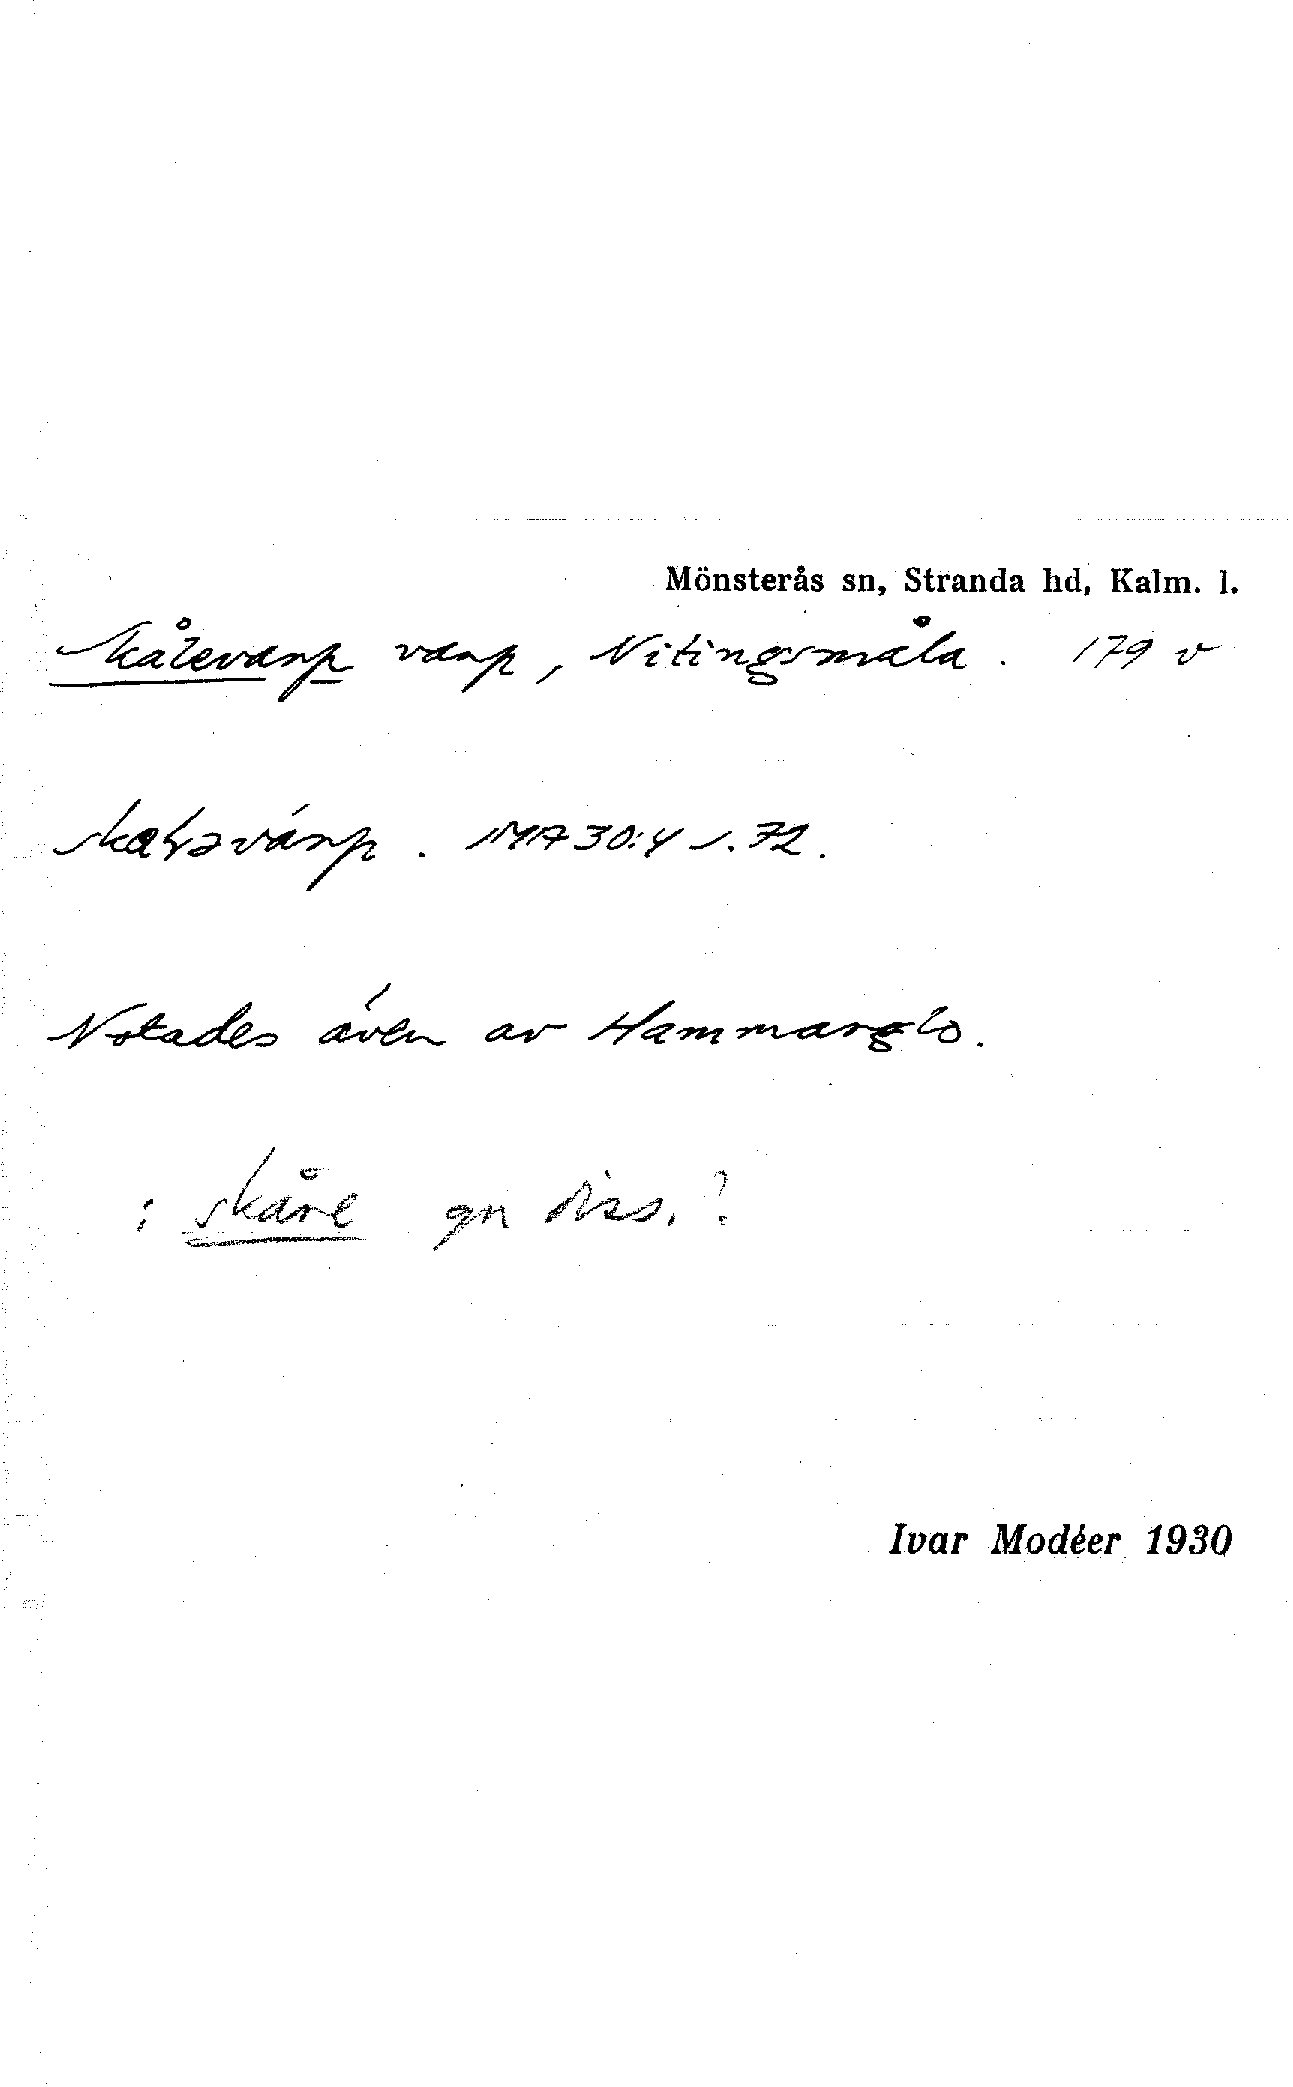 Mönsterås sn, Stranda hd, Kalm. l.
Skålevarp varp, Nitingsmåla. 179 v
IMA 30:4 s. 72.
Notades även av Hammarglo.
: skåre gn diss.?
Ivar Modéer 1930